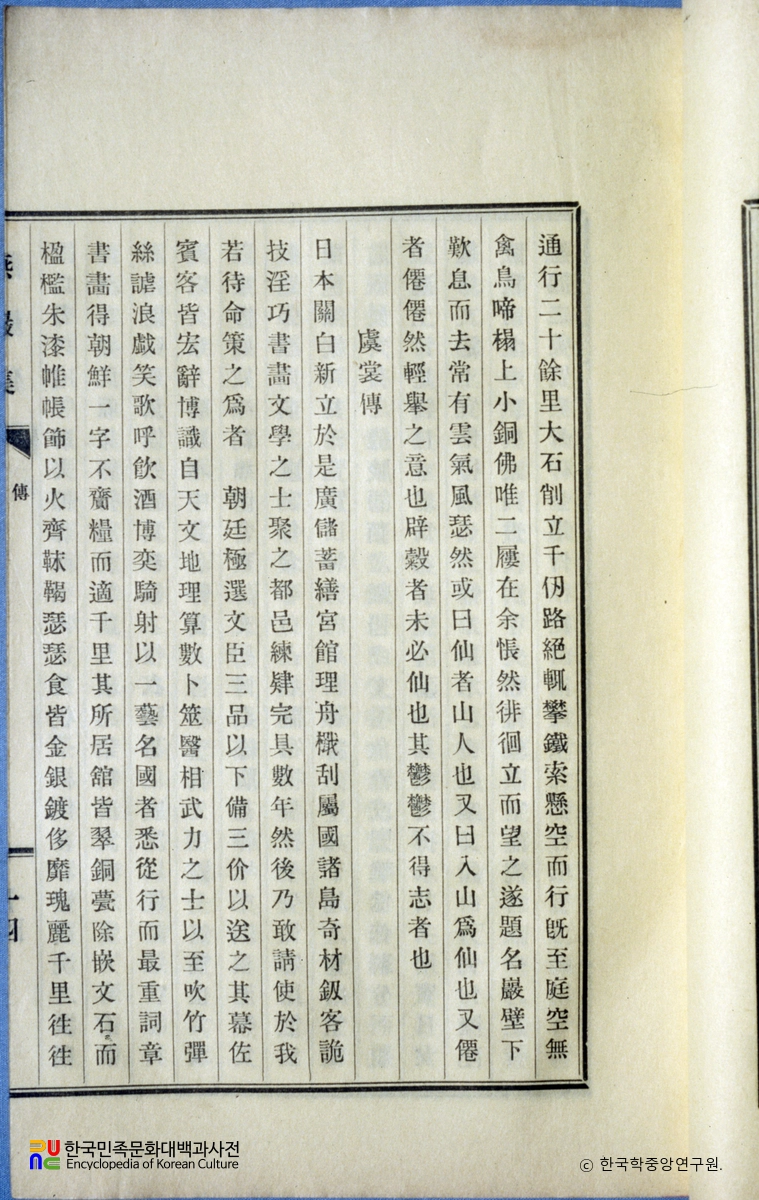 通行二十餘里大石削立千仞路絕輒攀鐵索懸空而行旣至庭空無
禽鳥啼榻上小銅佛唯二屨在余悵然徘徊立而望之遂題名巖壁下
歎息而去常有雲氣風瑟然或曰仙者山人也又曰入山爲仙也又僊
者僊僊然輕擧之意也辟穀者未必仙也其鬱鬱不得志者也
虞裳傳
日本關白新立於是廣儲蓄繕宮館理舟檝刮屬國諸島奇材釼客詭
技淫巧書畵文學之士聚之都邑練肄完具數年然後乃敢請使於我
若待命策之爲者　朝廷極選文臣三品以下備三价以送之其幕佐
賓客皆宏辭博識自天文地理算數卜筮醫相武力之士以至吹竹彈
絲謔浪戱笑歌呼飮酒博奕騎射以一藝名國者悉從行而最重詞章
書畵得朝鮮一字不齎糧而適千里其所居舘皆翠銅甍除嵌文石而
楹檻朱漆帷帳飾以火齊靺鞨瑟瑟食皆金銀鍍侈靡瑰麗千里徃徃
傳
한국민족문화대백과사전
Encyclopedia of Korean Culture
© 한국학중앙연구원.